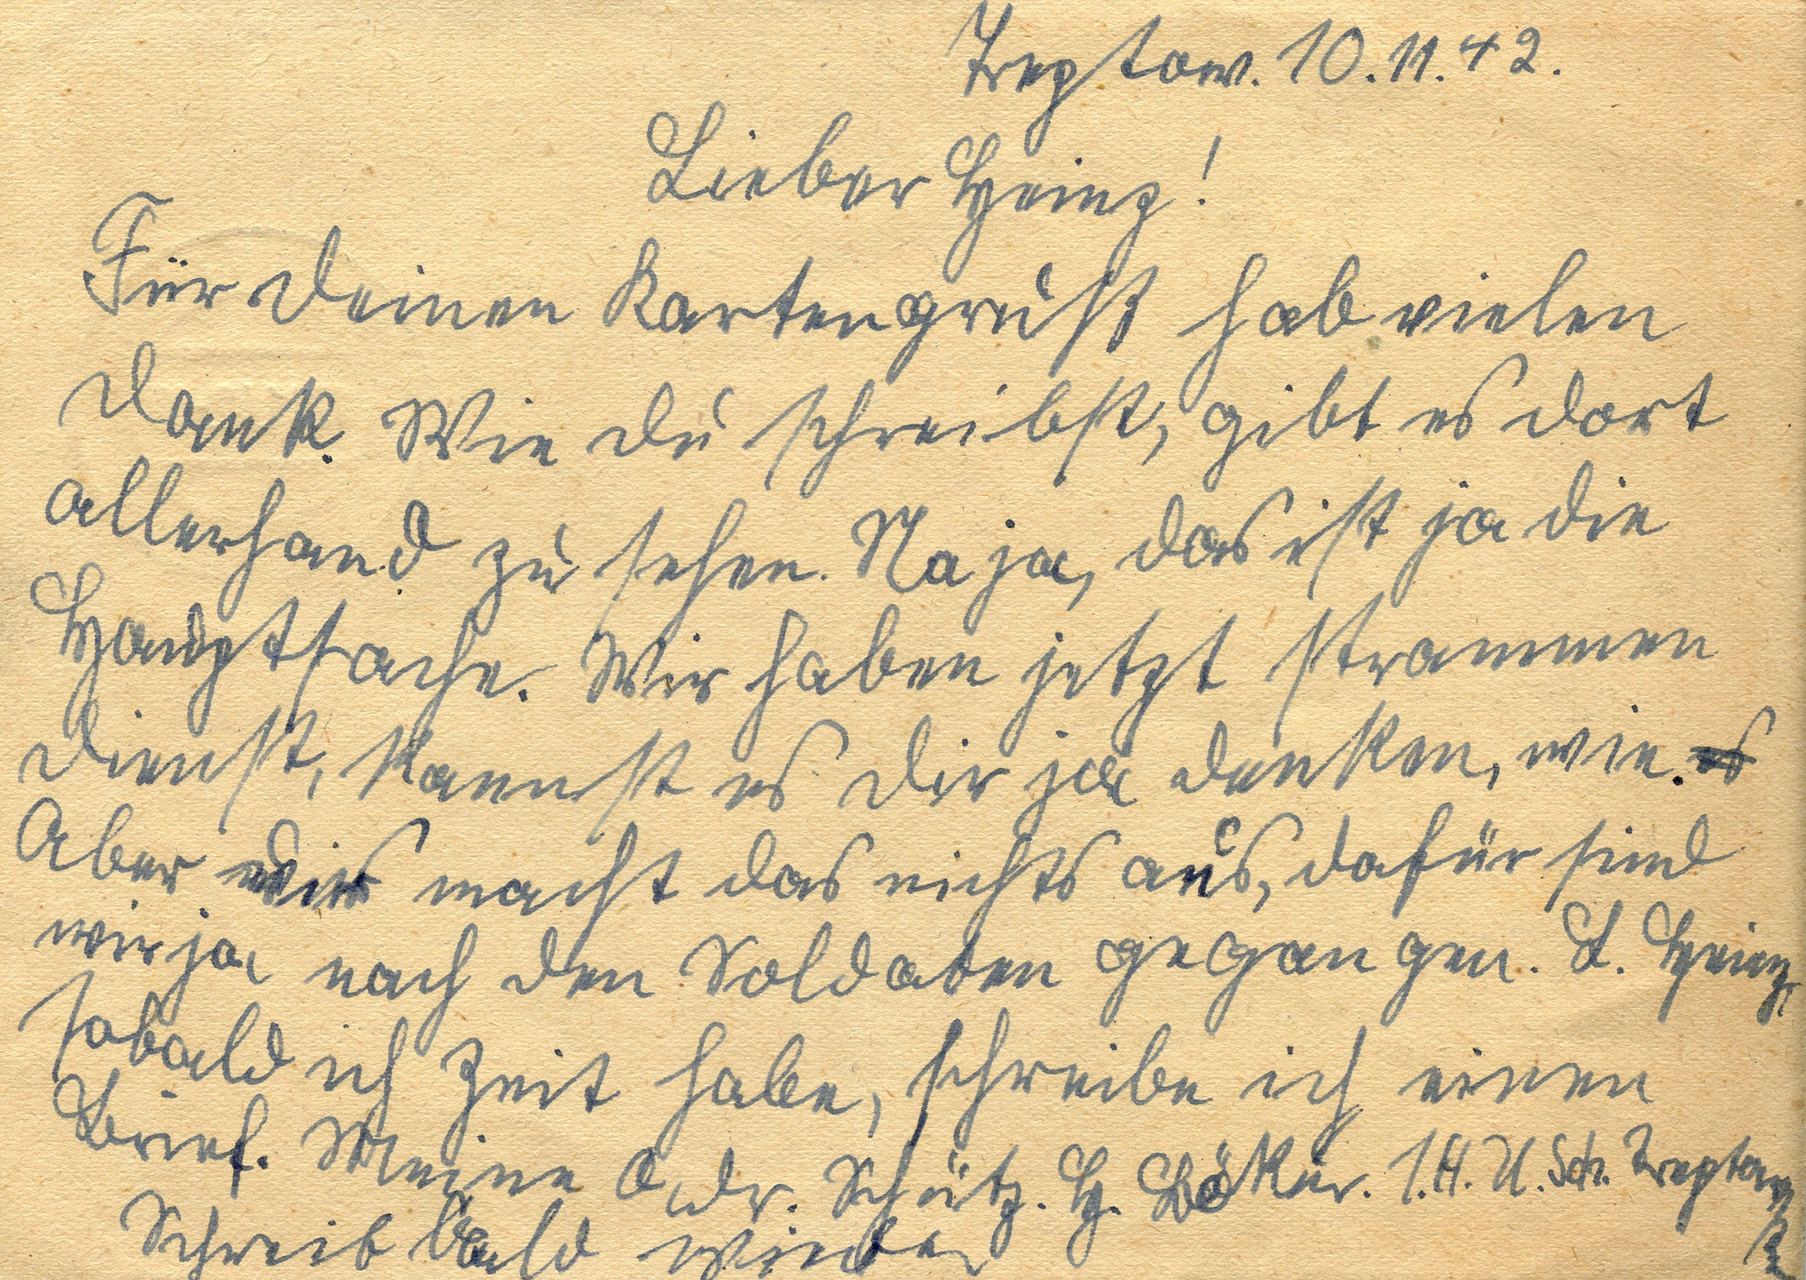 Treptow. 10.11.42.
Lieber Heinz!
Für deinen Kartengruß hab vielen
Dank. Wie du schreibst, gibt es dort
allerhand zu sehen. Na ja, das ist ja die
Hauptsache. Wir haben jetzt strammen
Dienst, kannst es dir ja denken, wie.
Aber uns macht das nichts aus, dafür sind
wir ja nach den Soldaten gegangen. L. Heinz,
sobald ich Zeit habe, schreibe ich einen
Brief. Meine Adr. Schütz. H. 1.H.U.Sch. Treptow
Schreib bald wieder